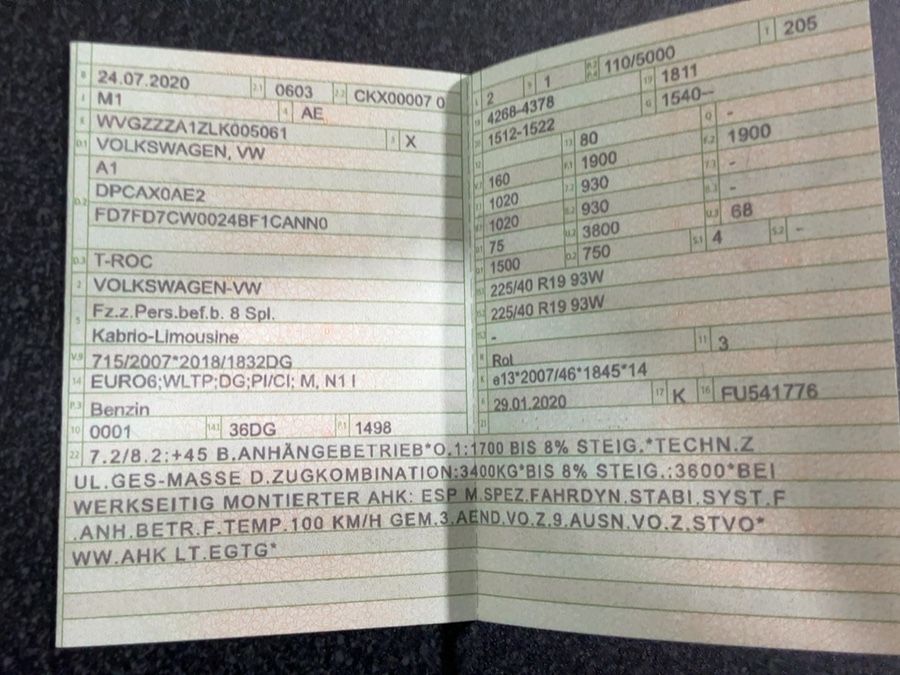 B 24.07.2020 2.1 0603 2.2 CKX00007 0
J M1 4 AE
E WVGZZZA1ZLK005061 3 X
D.1 VOLKSWAGEN, VW
A1
D.2 DPCAX0AE2
FD7FD7CW0024BF1CANN0
D.3 T-ROC
2 VOLKSWAGEN-VW
5 Fz.z.Pers.bef.b. 8 Spl.
Kabrio-Limousine
V.9 715/2007*2018/1832DG
14 EURO6;WLTP;DG;PI/CI; M, N1 I
P.3 Benzin
10 0001 14.1 36DG P.1 1498
L 2 9 1 P.2 P.4 110/5000 T 205
18 4268-4378 19 1811
20 1512-1522 G 1540--
12 - 13 80 Q -
V.7 160 F.1 1900 F.2 1900
7.1 1020 7.2 930 7.3 -
8.1 1020 8.2 930 8.3 -
U.1 75 U.2 3800 U.3 68
O.1 1500 O.2 750 S.1 4 S.2 -
15.1 225/40 R19 93W
15.2 225/40 R19 93W
15.3 -
R Rot 11 3
K e13*2007/46*1845*14
6 29.01.2020 17 K 16 FU541776
21
22 7.2/8.2:+45 B.ANHÄNGEBETRIEB*O.1:1700 BIS 8% STEIG.*TECHN.Z
UL.GES-MASSE D.ZUGKOMBINATION:3400KG*BIS 8% STEIG.:3600*BEI
WERKSEITIG MONTIERTER AHK: ESP M.SPEZ.FAHRDYN.STABI.SYST.F
.ANH.BETR.F.TEMP.100 KM/H GEM.3.AEND.VO.Z.9.AUSN.VO.Z.STVO*
WW.AHK LT.EGTG*